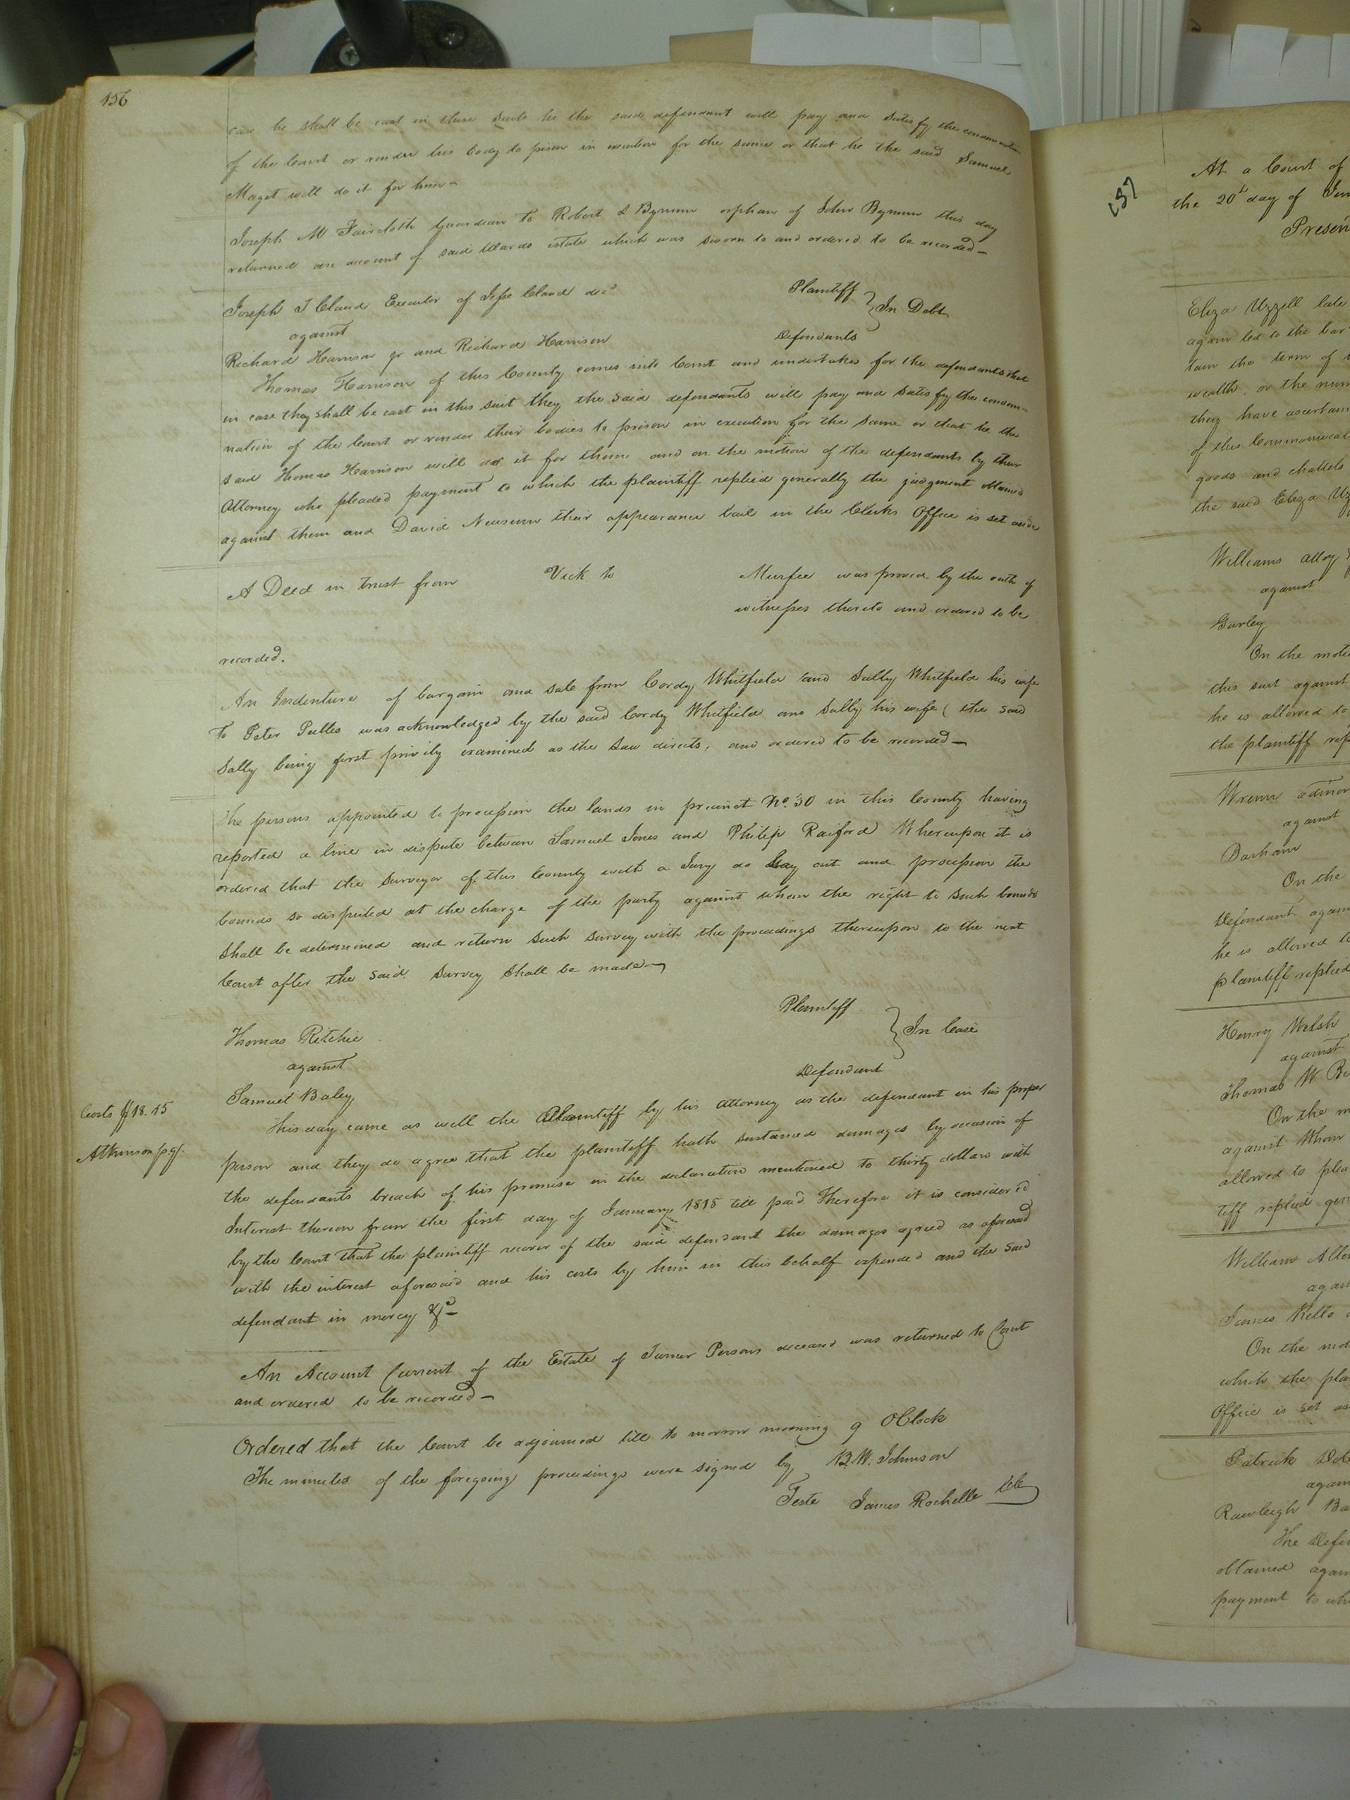 156
case he shall be cast in these suits he the said defendant will pay and satisfy the condemnation
of the Court or render his body to prison in execution for the same or that he the said Samuel
Maget will do it for him
Joseph M Faircloth Guardian to Robert S Bynum orphan of John Bynum this day
returned an account of said Wards estate which was sworn to and ordered to be recorded
Joseph T Claud Executor of Jesse Claud decd Plaintiff
against In Debt
Richard Harrison jr and Richard Harrison Defendants
Thomas Harrison of this County comes into Court and undertakes for the defendants that
in case they shall be cast in this suit they the said defendants will pay and satisfy the condem-
nation of the Court or render their bodies to prison in execution for the same or that he the
said Thomas Harrison will do it for them and on the motion of the defendants by their
Attorney who pleaded payment to which the plaintiff replied generally the judgment obtained
against them and David Newsum their appearance bail in the Clerks Office is set aside
A Deed in trust from Vick to Murfee was proved by the oath of
witnesses thereto and ordered to be
recorded.
An Indenture of bargain and sale from Cordy Whitfield and Sally Whitfield his wife
to Peter Pulles was acknowledged by the said Cordy Whitfield and Sally his wife (the said
Sally being first privily examined as the Law directs, and ordered to be recorded
The persons appointed to procession the lands in precinct No. 30 in this County having
reported a line in dispute between Samuel Jones and Philip Raiford Whereupon it is
ordered that the Surveyor of this County with a Jury do Lay out and procession the
bounds so disputed at the charge of the party against whom the right to such bounds
shall be determined and return such survey with the proceedings thereupon to the next
Court after the said Survey shall be made
Thomas Ritchie Plaintiff
against In Case
Samuel Baley Defendant
Costs $18.15
Atkinson pq.
This day came as well the Plaintiff by his attorney as the defendant in his proper
person and they do agree that the plaintiff hath sustained damages by occasion of
the defendants breach of his promise in the declaration mentioned to thirty dollars with
Interest thereon from the first day of January 1818 till paid Therefore it is consider'd
by the Court that the plaintiff recover of the said defendant the damages agreed as aforesaid
with the interest aforesaid and his costs by him in this behalf expended and the said
defendant in mercy &c
An Account Current of the Estate of Turner Persons deceased was returned to Court
and ordered to be recorded
Ordered that the Court be adjourned till to morrow morning 9 OClock
The minutes of the foregoing proceedings were signed by B.W. Johnson
Teste James Rochelle Clk
157
At a Court of
the 20th day of
Presen
Eliza Uzzell late
again led to the bar
tain the term of
wealth or the num
they have ascertain
of this Commonweal
goods and chattels
the said Eliza Uz
Williams assy
against
Gurley
On the moti
this suit against
he is allowed to
the plaintiff rep
Wrenn admor
against
Barham
On the
Defendant again
he is allowed to
plaintiff replied
Henry Welsh
against
Thomas W
On the m
against Whom
allowed to plea
tiff replied gen
William Allen
again
James Kello
On the mot
which the pla
Office is set as
Patrick
again
Rawleigh Ba
The Defen
obtained again
payment to wh